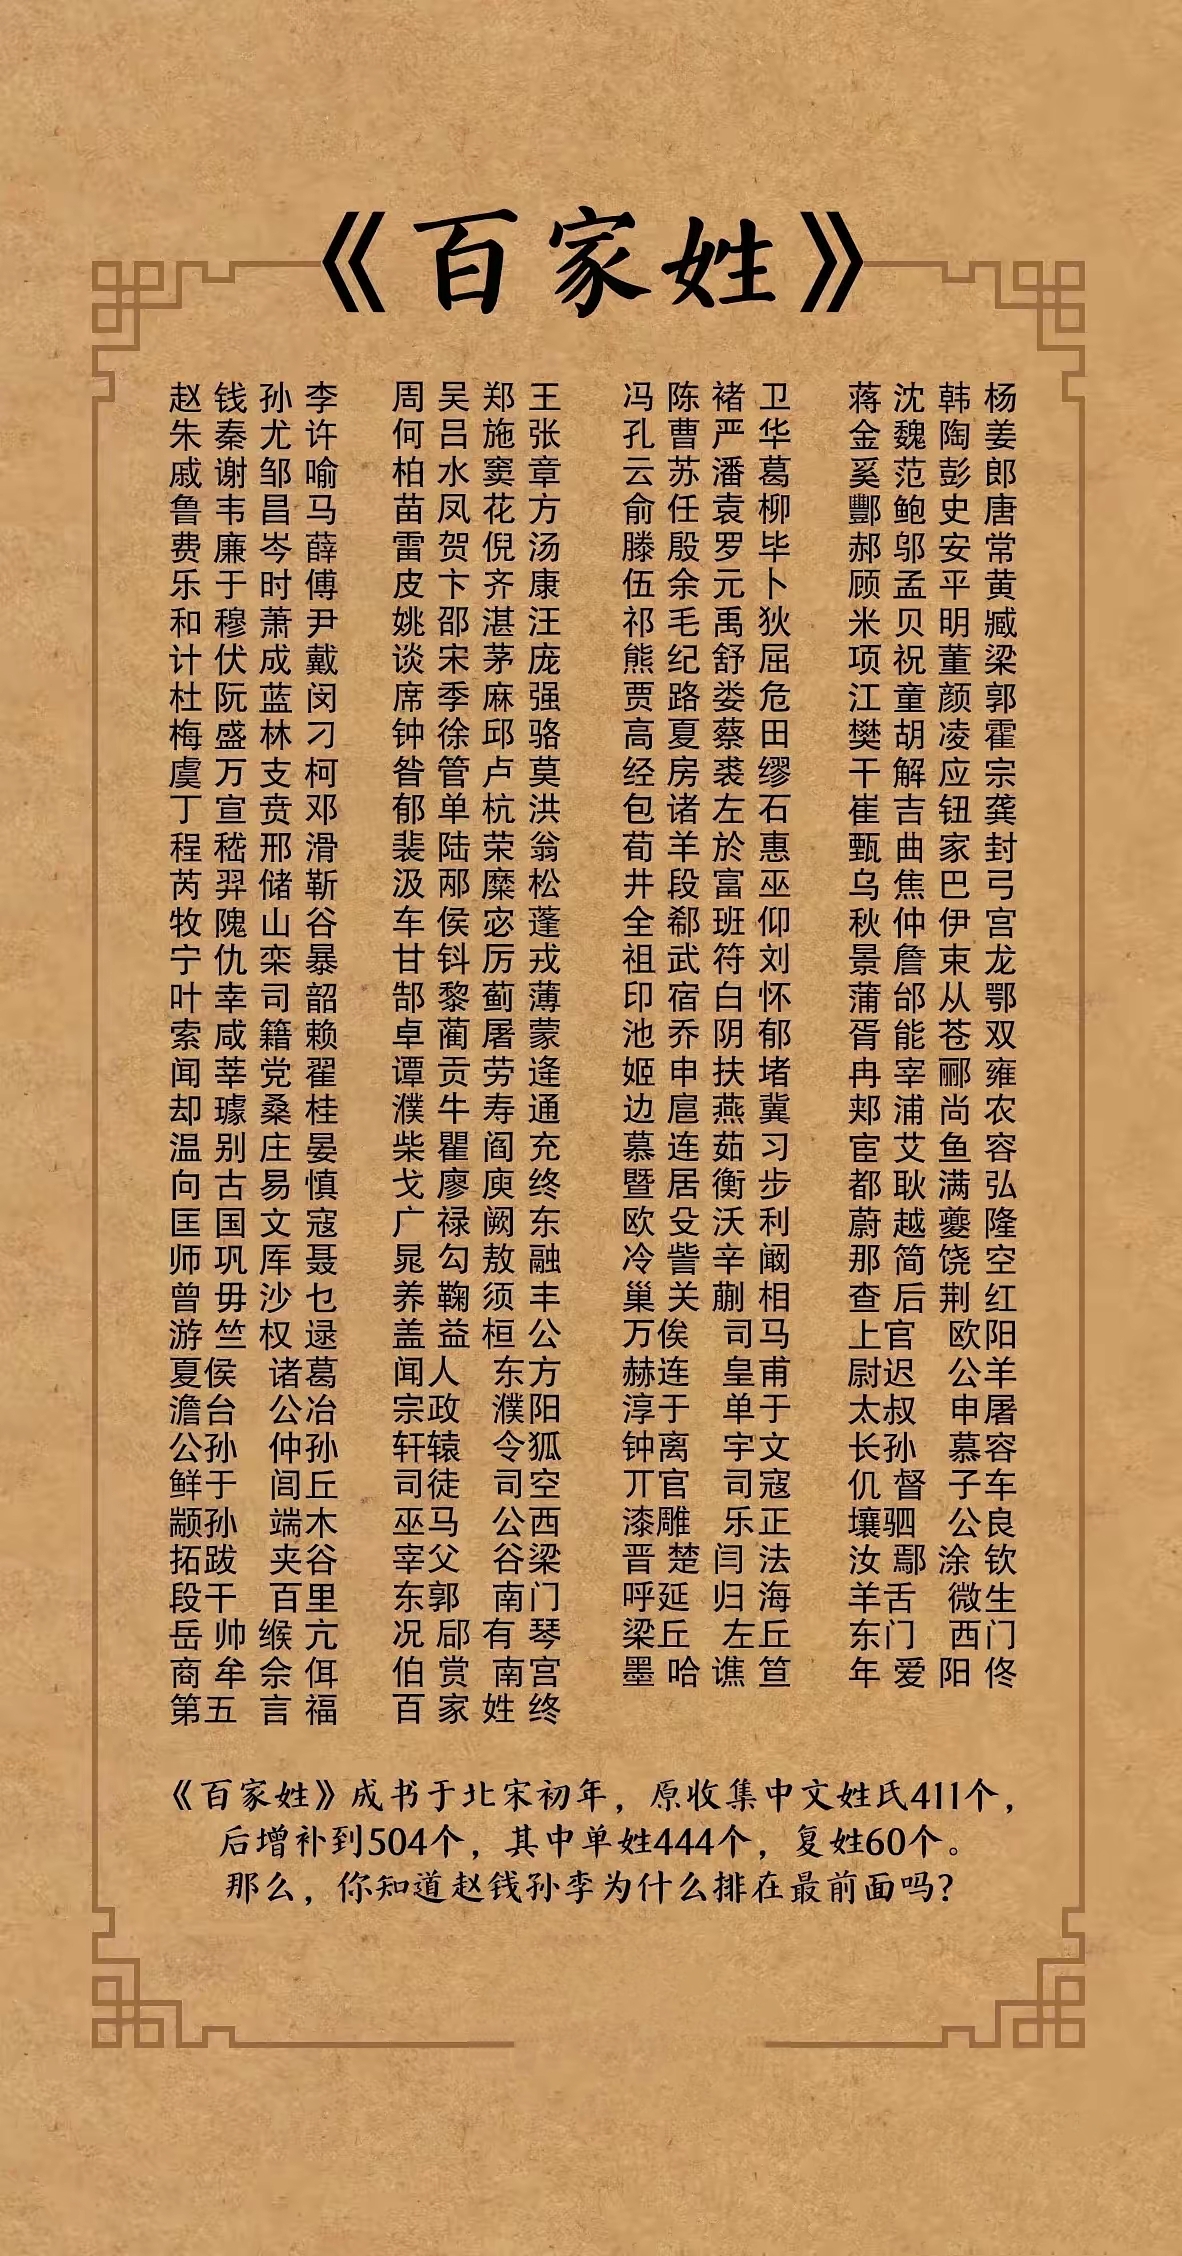 《百家姓》
赵钱孙李 周吴郑王 冯陈褚卫 蒋沈韩杨
朱秦尤许 何吕施张 孔曹严华 金魏陶姜
戚谢邹喻 柏水窦章 云苏潘葛 奚范彭郎
鲁韦昌马 苗凤花方 俞任袁柳 酆鲍史唐
费廉岑薛 雷贺倪汤 滕殷罗毕 郝邬安常
乐于时傅 皮卞齐康 伍余元卜 顾孟平黄
和穆萧尹 姚邵湛汪 祁毛禹狄 米贝明臧
计伏成戴 谈宋茅庞 熊纪舒屈 项祝董梁
杜阮蓝闵 席季麻强 贾路娄危 江童颜郭
梅盛林刁 钟徐邱骆 高夏蔡田 樊胡凌霍
虞万支柯 昝管卢莫 经房裘缪 干解应宗
丁宣贲邓 郁单杭洪 包诸左石 崔吉钮龚
程嵇邢滑 裴陆荣翁 荀羊於惠 甄曲家封
芮羿储靳 汲邴糜松 井段富巫 乌焦巴弓
牧隗山谷 车侯宓蓬 全郗班仰 秋仲伊宫
宁仇栾暴 甘钭厉戎 祖武符刘 景詹束龙
叶幸司韶 郜黎蓟薄 印宿白怀 蒲邰从鄂
索咸籍赖 卓蔺屠蒙 池乔阴郁 胥能苍双
闻莘党翟 谭贡劳逄 姬申扶堵 冉宰郦雍
却璩桑桂 濮牛寿通 边扈燕冀 郏浦尚农
温别庄晏 柴瞿阎充 慕连茹习 宦艾鱼容
向古易慎 戈廖庾终 暨居衡步 都耿满弘
匡国文寇 广禄阙东 欧殳沃利 蔚越夔隆
师巩厍聂 晁勾敖融 冷訾辛阚 那简饶空
曾毋沙乜 养鞠须丰 巢关蒯相 查后荆红
游竺权逯 盖益桓公 万俟 司马 上官 欧阳
夏侯 诸葛 闻人 东方 赫连 皇甫 尉迟 公羊
澹台 公冶 宗政 濮阳 淳于 单于 太叔 申屠
公孙 仲孙 轩辕 令狐 钟离 宇文 长孙 慕容
鲜于 闾丘 司徒 司空 丌官 司寇 仉督 子车
颛孙 端木 巫马 公西 漆雕 乐正 壤驷 公良
拓跋 夹谷 宰父 谷梁 晋楚闫法 汝鄢涂钦
段干 百里 东郭 南门 呼延 归海 羊舌 微生
岳帅缑亢 况郈有琴 梁丘 左丘 东门 西门
商牟佘佴 伯赏 南宫 墨哈谯笪 年爱阳佟
第五 言福 百家姓终
《百家姓》成书于北宋初年，原收集中文姓氏411个，
后增补到504个，其中单姓444个，复姓60个。
那么，你知道赵钱孙李为什么排在最前面吗？